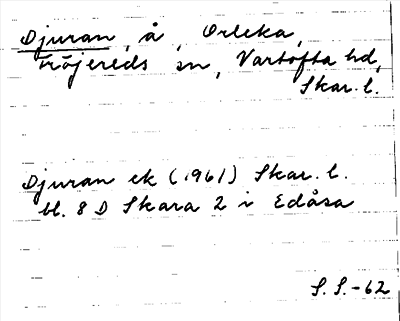 Djuran, å, Orleka,
Fröjereds sn, Vartofta hd,
Skar. l.
Djuran ek (1961) Skar. l.
bl. 8 D Skara 2 i Edåsa
S. S. -62